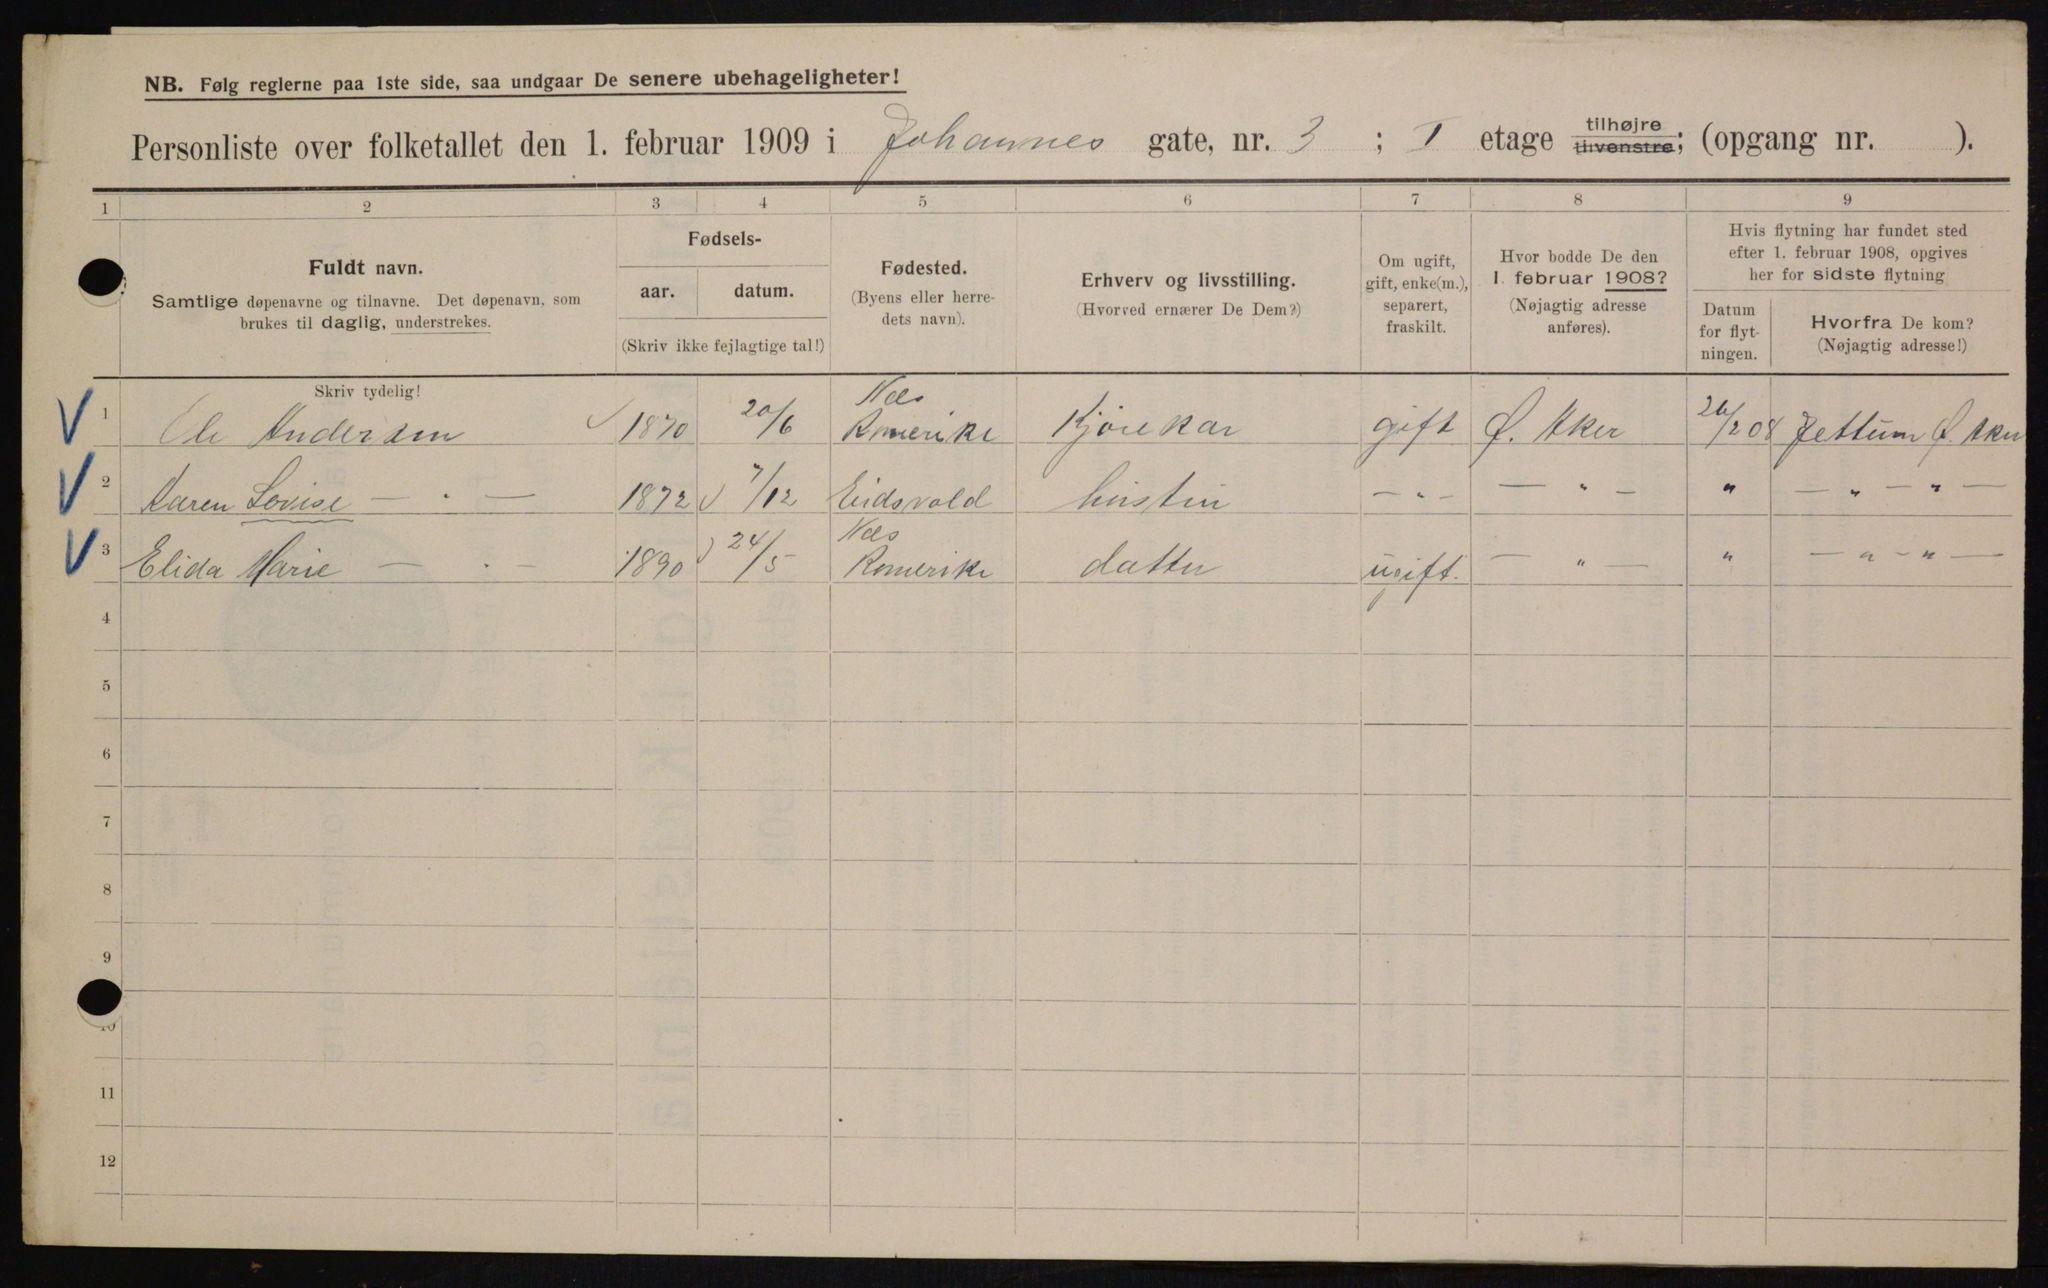 NB. Følg reglerne paa 1ste side, saa undgaar De senere ubehageligheter!
Personliste over folketallet den 1. februar 1909 i Johannes gate, nr. 3 ; I etage tilhøjre tilvenstre; (opgang nr. ).
1 2 3 4 5 6 7 8 9
Fuldt navn.
Samtlige døpenavne og tilnavne. Det døpenavn, som
brukes til daglig, understrekes.
Skriv tydelig!
Fødsels-
aar. datum.
(Skriv ikke fejlagtige tal!)
Fødested.
(Byens eller herre-
dets navn).
Erhverv og livsstilling.
(Hvorved ernærer De Dem?)
Om ugift,
gift, enke(m.),
separert,
fraskilt.
Hvor bodde De den
1. februar 1908?
(Nøjagtig adresse
anføres).
Hvis flytning har fundet sted
efter 1. februar 1908, opgives
her for sidste flytning
Datum
for flyt-
ningen.
Hvorfra De kom?
(Nøjagtig adresse!)
1 Ole Andersen 1870 20/6 Næs Romerike Kjørekar gift Ø. Aker 26/2 08 Ø. Aker
2 Karen Lovise — " — 1872 7/12 Eidsvold hustru — " — — " — " — " — " —
3 Elida Marie — " — 1890 24/5 Næs Romerike datter ugift. — " — " — " — " —
4
5
6
7
8
9
10
11
12